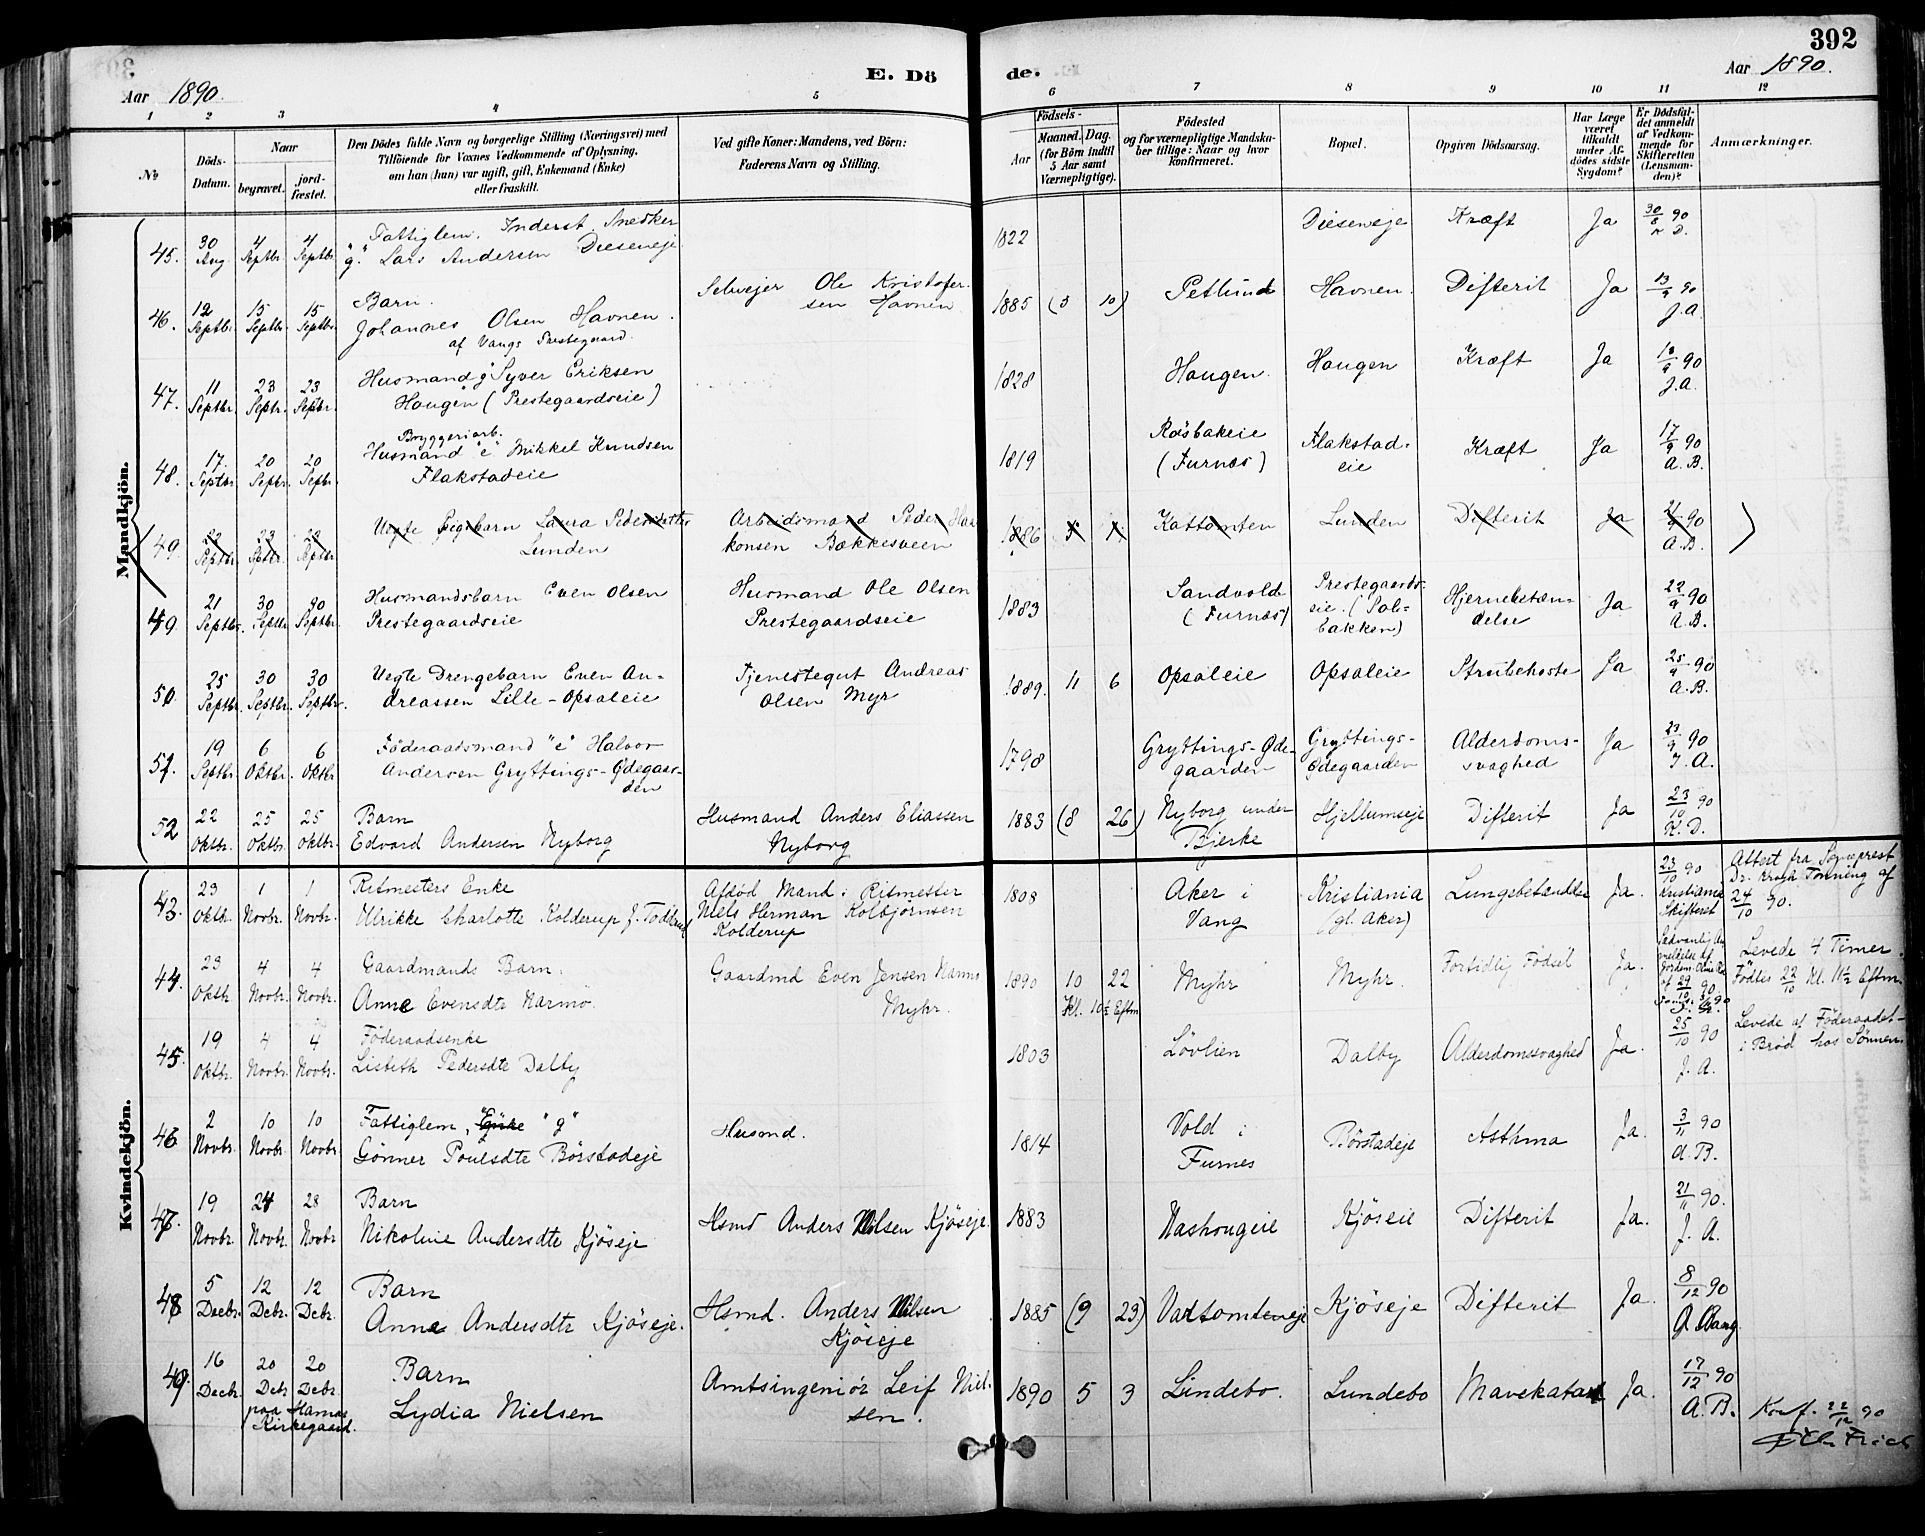 392
E. Dö
de.
Aar 1890.
Aar 1890.
1 2 3 4 5 6 7 8 9 10 11 12
No
Döds-
Datum.
Naar
begravet.
jord-
fæstet.
Den Dödes fulde Navn og borgerlige Stilling (Næringsvei) med
Tilföiende for Voxnes Vedkommende af Oplysning,
om han (hun) var ugift, gift, Enkemand (Enke)
eller fraskilt.
Ved gifte Koner: Mandens, ved Börn:
Faderens Navn og Stilling.
Födsels-
Aar
Maaned. Dag.
(for Börn indtil
5 Aar samt
Værnepligtige).
Födested
og for værnepligtige Mandska-
ber tillige: Naar og hvor
konfirmeret.
Bopæl.
Opgiven Dödsaarsag.
Har Læge
været
tilkaldt
under Af-
dödes sidste
Sygdom?
Er Dödsfal-
det anmeldt
af Vedkom-
mende for
Skifteretten
(Lensman-
den)?
Anmærkninger.
Mandkjön.
45. 30 Aug. 4 Septbr. 4 Septbr. Fattiglem. Inderst. Snedker
"g." Lars Andersen Dieseneje 1822 Dieseneje Kræft Ja 30/8 90
46. 12 Septbr. 15 Septbr. 15 Septbr. Barn.
Johannes Olsen Havnen.
af Vangs Prestegaard.
Selvejer Ole Kristofer-
sen Havnen 1885 (3 10) Petlund Havnen. Difterit Ja 13/9 90
J. A.
47. 11 Septbr. 23 Septbr. 23 Septbr. Husmand "g" Syver Eriksen
Haugen (Prestegaardseie) 1828 Haugen. Haugen Kræft Ja 13/9 90
J. A.
48. 17 Septbr. 20 Septbr. 20 Septbr. Bryggeriarb.
Husmand "e" Mikkel Knudsen
Flakstadeie 1819 Rösbakeie
(Furnæs) Flakstad-
eie Kræft Ja 17/9 90
A. B.
49. 22 Septbr. 23 Septbr. 23 Septbr. Uegte Pigebarn Laura Pedersdatter
Lunden Arbeidsmand Peder Haa-
konsen Bækkesveen 1886 5 1 Kattomten Lunden Difterit Ja 21/9 90
A. B.
49 21 Septbr. 30 Septbr. 30 Septbr. Husmandsbarn Even Olsen
Prestegaardseie Husmand Ole Olsen
Prestegaardseie 1883 Sandvold
(Furnæs) Prestegaards-
eie. (Sol-
bakken) Hjernebetæn-
delse Ja 22/9 90
A. B.
50 25 Septbr. 30 Septbr. 30 Septbr. Uegte Drengebarn Even An-
dreassen Lille-Opsaleie Tjenestegut Andreas
Olsen Myr 1889. 11 6 Opsaleie Opsaleie Strubehoste Ja 25/9 90
A. B.
51. 19 Septbr. 6 Oktbr. 6 Oktbr. Föderaadsmand "e" Halvor
Andersen Gryttings-Ødegaar-
den 1798 Gryttings-Øde-
gaarden Gryttings-
Ødegaarden Alderdoms-
svaghed Ja 23/9 90
J. A.
52 22 Oktbr. 25 Oktbr. 25 Oktbr. Barn
Edvard Andersen Nyborg Husmand Anders Eliassen
Nyborg 1883 (8 26) Nyborg under
Bjerke Hjellumseje Difterit Ja 23/10 90
K. D.
Kvindekjön.
43. 23 Oktbr. 1 Novbr. 1 Novbr. Ritmesters Enke
Ulrikke Charlotte Kolderup f. Todderud Afdöd Mand: Ritmester
Niels Herman Kolbjörnsen
Kolderup 1808 Aker i
Vang Kristiania
(gl. Aker) Lungebetændelse Ja. 23/10 90
Kristiania
Skifteret Attest fra Sogneprest
Dr. Krogh Tonning af
24/10 90.
44. 23 Oktbr. 4 Novbr. 4 Novbr. Gaardmands Barn.
Anne Evensdtr Narmo. Gaardmd Even Jensen Narmo
Myhr. 1890 10 22
Kl. 10½ Eftm Myhr Myhr. Fortidlig Födsel Ja. Levede 4 Timer.
Födtes 22/10 Kl. 11½ Eftm.
45. 19 Oktbr. 4 Novbr. 4 Novbr. Föderaadsenke
Lisbeth Pedersdtr Dalby 1803 Lövlien Dalby Alderdomssvaghed Ja. 25/10 90
J. A. Levede af Föderaadet
i Bröd hos Sönnen.
46 2 Novbr. 10 Novbr. 10 Novbr. Fattiglem, "Enke" "g"
Gönner Poulsdtr Börstadeje Husmd. 1814 Vold i
Furnes Börstadeje Asthma Ja. 3/11 90
A. B.
47. 19 Novbr. 24 Novbr. 28 Novbr. Barn
Nikoline Andersdtr Kjöseje Hsmd Anders Nilsen Kjöseje. 1883 Nashougeie Kjöseie Difterit Ja. 21/11 90.
J. A.
48 5 Decbr. 12 Decbr. 12 Decbr. Barn
Anne Andersdtr Kjöseje. Hsmd. Anders Nilsen
Kjöseje 1885 (9 23) Vattomteneje Kjöseje Difterit Ja. 8/12 90
A. Bang
49. 16 Decbr. 20 Decbr. 20 Decbr.
paa Hamar
Kirkegaard. Barn
Lydia Nielsen Amtsingeniör Leif Niel-
sen. 1890 5 3 Lindebo. Lundebo Mavekatarr Ja. 17/12 90
A. B. Konf. 22/12 90